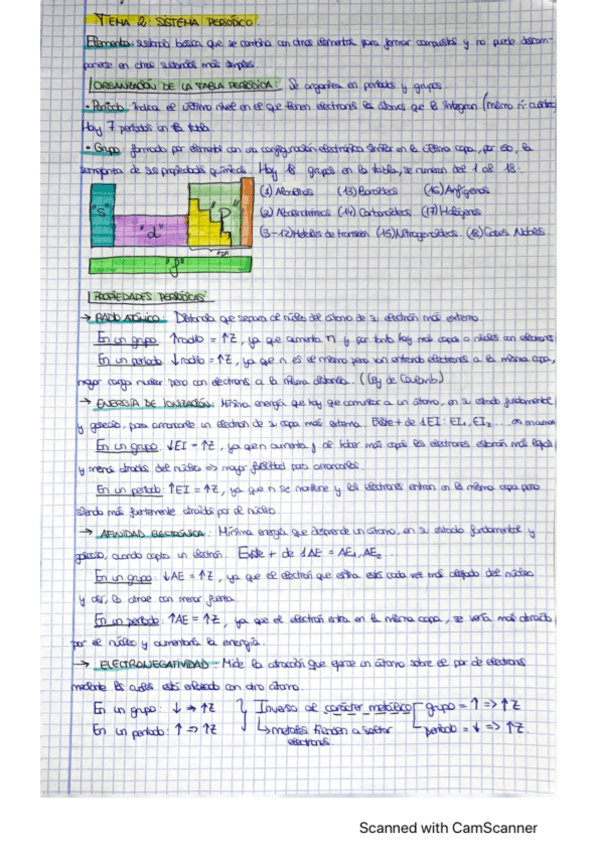 TEMA 2: SISTEMA PERIÓDICO
Elemento: sustancia básica que se combina con otros elementos para formar compuestos y no puede descom-
ponerse en otras sustancias más simples.
ORGANIZACIÓN DE LA TABLA PERIÓDICA: Se organiza en periodos y grupos.
• Periodo: indica el último nivel en el que tienen electrones los átomos que lo integran (mismo n
Hay 7 periodos en la tabla.
• Grupo: formado por elementos con una configuración electrónica similar en la última capa, por eso, la
semejanza de sus propiedades químicas. Hay 18 grupos en la tabla, se numeran del 1 al 18:
(1) Alcalinos (13) Boroideos (16) Anfígenos
(2) Alcalinotérreos (14) Carbonoideos (17) Halógenos
(3-12) Metales de transición (15) Nitrogenoideos (18) Gases Nobles
"s" "d" "p"
"f"
PROPIEDADES PERIÓDICAS
→ RADIO ATÓMICO: Distancia que separa el núcleo del átomo de su electrón más externo.
En un grupo: ↑radio = ↑Z, ya que aumenta n y por tanto hay más capas o niveles con electrones
En un periodo: ↓radio = ↑Z, ya que n es el mismo pero van entrando electrones a la misma capa,
mayor carga nuclear pero con electrones a la misma distancia. (Ley de Coulomb)
→ ENERGÍA DE IONIZACIÓN: Mínima energía que hay que comunicar a un átomo, en su estado fundamental
y gaseoso, para arrancarle un electrón de su capa más externa. Existe + de 1EI: EI₁, EI₂ ...
En un grupo: ↓EI = ↑Z, ya que n aumenta y al haber más capas los electrones estarán más lejos
y menos atraídos del núcleo => mayor facilidad para arrancarlos.
En un periodo: ↑EI = ↑Z, ya que n se mantiene y los electrones entran en la misma capa pero
siendo más fuertemente atraídos por el núcleo.
→ AFINIDAD ELECTRÓNICA: Mínima energía que desprende un átomo, en su estado fundamental y
gaseoso, cuando capta un electrón. Existe + de 1AE = AE₁, AE₂...
En un grupo: ↓AE = ↑Z, ya que el electrón que entra está cada vez más alejado del núcleo
y así, lo atrae con menor fuerza.
En un periodo: ↑AE = ↑Z, ya que el electrón entra en la misma capa, se vería más atraído
por el núcleo y aumentaría la energía.
→ ELECTRONEGATIVIDAD: Mide la atracción que ejerce un átomo sobre el par de electrones
mediante los cuales está enlazado con otro átomo.
En un grupo: ↓ => ↑Z Inverso al carácter metálico grupo = ↑ => ↑Z
En un periodo: ↑ => ↑Z ↳ metales tienden a soltar periodo = ↓ => ↑Z.
electrones.
Scanned with CamScanner